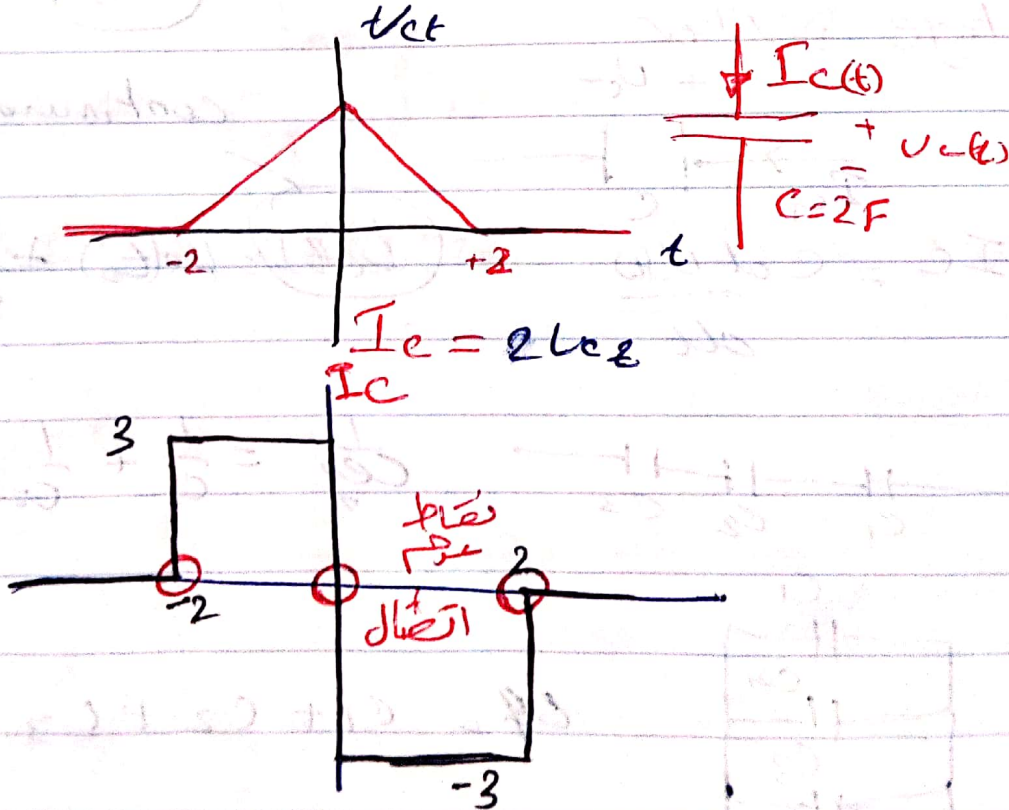 Vct
Ic(t)
+
Vc(t)
-
C=2F
-2
+2
t
Ic = 2
Ic
3
نقاط
عدم
اتصال
2
-2
-3